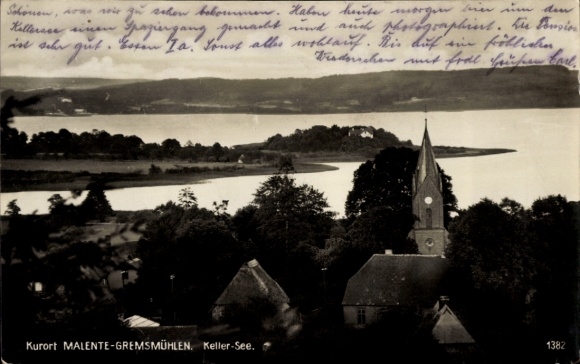 Schönen, was wir zu sehen bekommen. Haben heute morgen hier um den
Kellersee einen Spaziergang gemacht und auch photographiert. Die Pension
ist sehr gut. Essen Ia. Sonst alles wohlauf. Bis auf ein fröhliches
Wiedersehen mit frdl. Grüßen
Kurort MALENTE-GREMSMÜHLEN. Keller-See. 1382